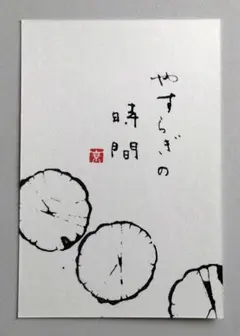 やすらぎの
時間